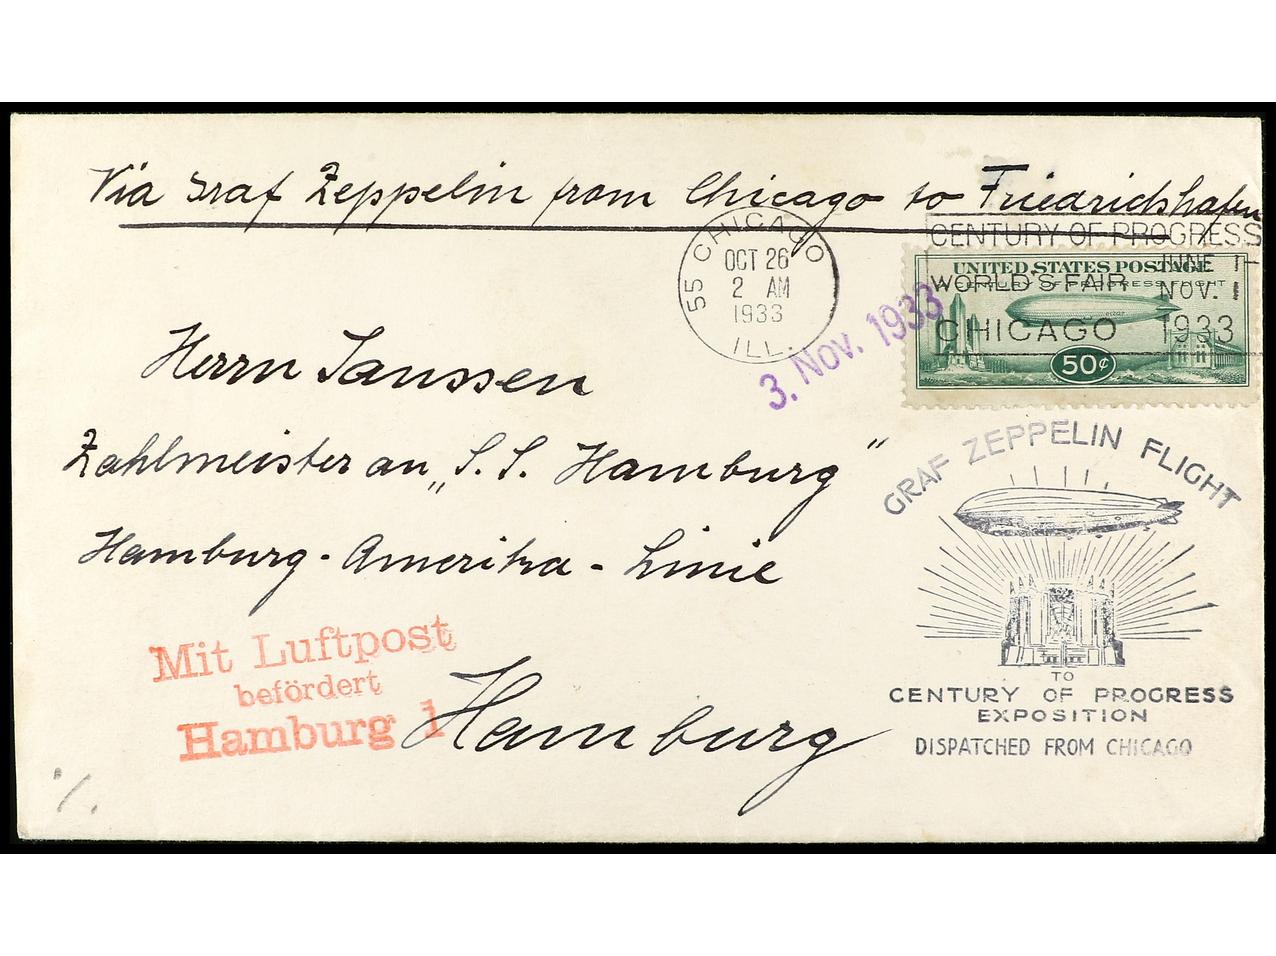 Via Graf Zeppelin from Chicago to Friedrichshafen
55 CHICAGO
OCT 26
2 AM
1933
ILL.
CENTURY OF PROGRESS
WORLD'S FAIR
CHICAGO
JUNE 1-
NOV. 1
1933
UNITED STATES POSTAGE
A CENTURY OF PROGRESS FLIGHT
50¢
3. Nov. 1933
Herrn Janssen
Zahlmeister an „S. S. Hamburg"
Hamburg-Amerika-Linie
Hamburg
Mit Luftpost
befördert
Hamburg 1
GRAF ZEPPELIN FLIGHT
TO
CENTURY OF PROGRESS
EXPOSITION
DISPATCHED FROM CHICAGO